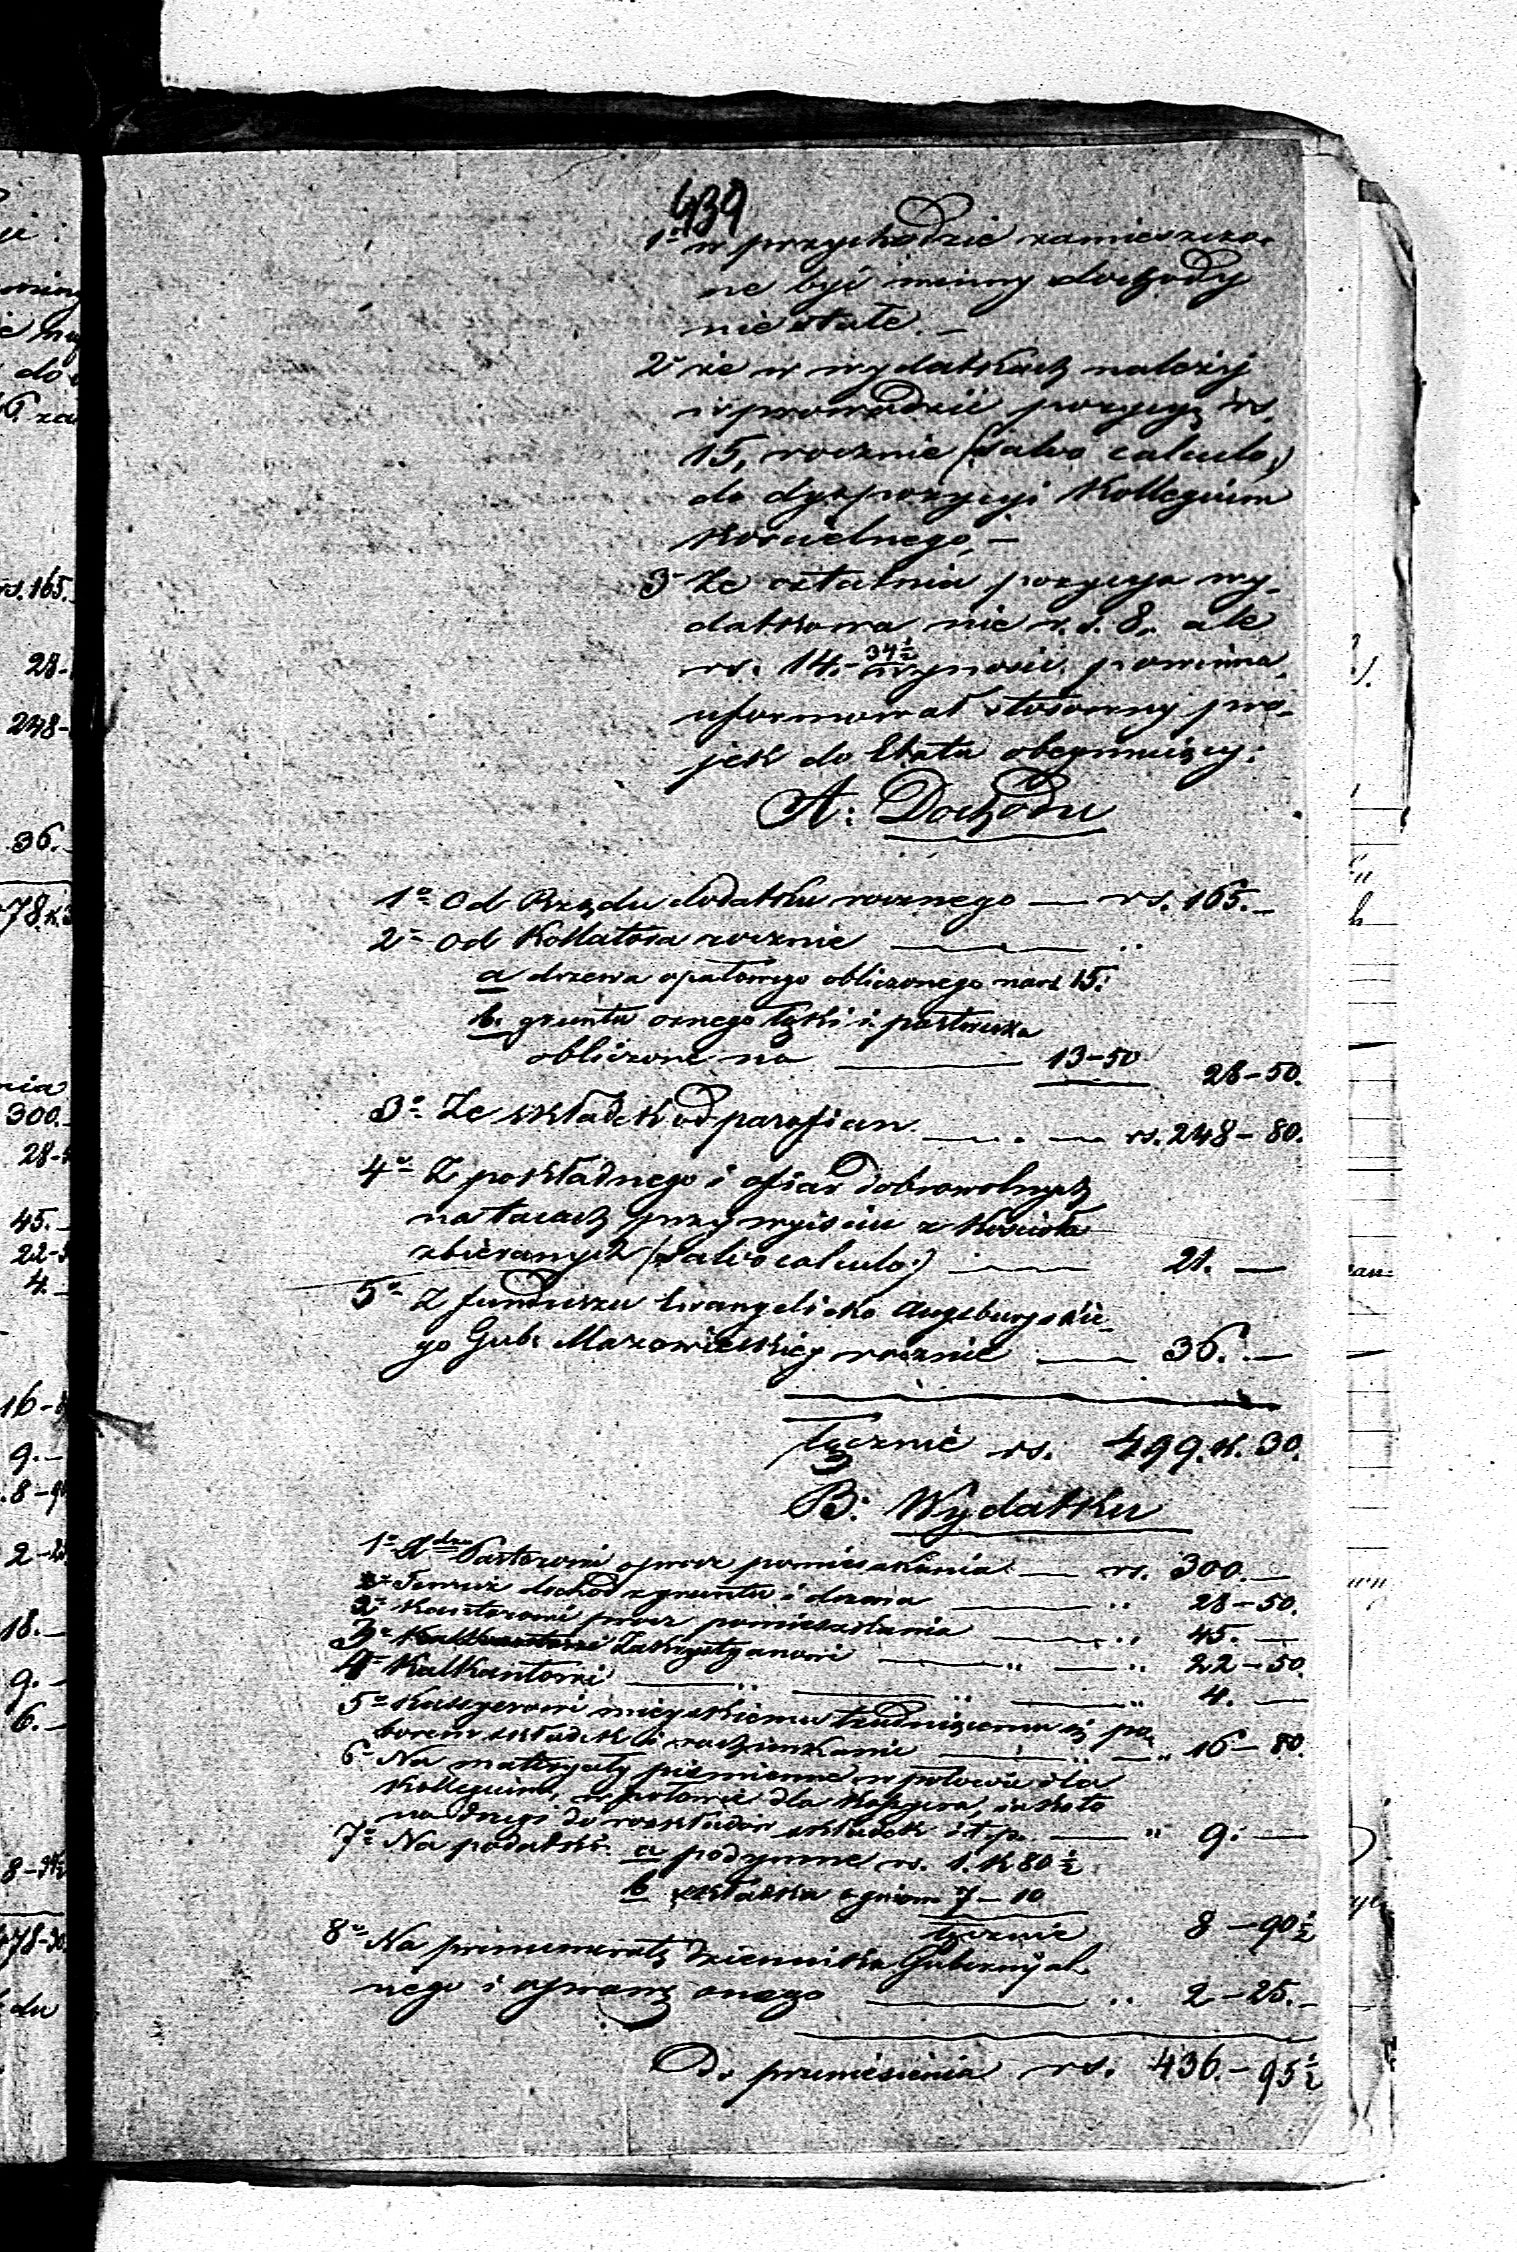 439
1o w przychodzie zamieszczo-
ne być winny dochody
nie stałe. –
2o że w wydatkach należy
wprowadzić pozycyą rs.
15, rocznie (salvo calculo,)
do dyspozycyi Kollegium
Kościelnego, –
3o że ostatnia pozycya wy-
datkowa nie r. s. 8. ale
rs. 14.– 34½ wynosić powinna,
uformował stosowny pro-
jekt do Etatu obejmujący:
A: Dochodu
1o Od Rządu dodatku rocznego — rs. 165. –
2o Od Kollatora rocznie — "
a drzewa opałowego obliczonego na rs. 15.
b. gruntu ornego łąki i pastwiska
obliczone na — 13–50 28–50.
3o Ze składek od parafian — . — rs. 248–80.
4o Z pokładnego i ofiar dobrowolnych
na tacach przy wyjściu z Kościoła
zbieranych (salvo calculo.) — 21. —
5o Z funduszu Ewangelicko Augsburgskie-
go Gub: Mazowieckiej rocznie — 36. —
łącznie rs. 499. k. 30.
B: Wydatku
1o Pastorowi oprócz pomieszkania — rs. 300. —
2o Temuż dochód z gruntu i drzewa — " 28–50.
2o Kantorowi prócz pomieszkania — " 45. —
3o Zakrystyanowi — " — " 22–50.
4o Kalkantowi — " — " — " 4. —
5o Kassyerowi miejskiemu trudniącemu się po-
borem składek i rachunkami — " — " 16–80.
6o Na materyały piśmienne w połowie dla
Kollegium, w połowie dla Kassyera, jako to
na druki do rozkładów składek i t. p. — " 9. —
7o Na podatki: a podymne rs. 1. k 80½
b składka ogniowa 7–10
łącznie 8–90½
8o Na prenumeratę Dziennika Gubernijal-
nego i oprawę onego — " 2–25. –
Do przeniesienia rs. 436.–95½
rs. 165.
28–
248–
36.
300.
28–
45.
22–
4.
16–
9. –
8–9
2–2
18. –
9. –
6. –